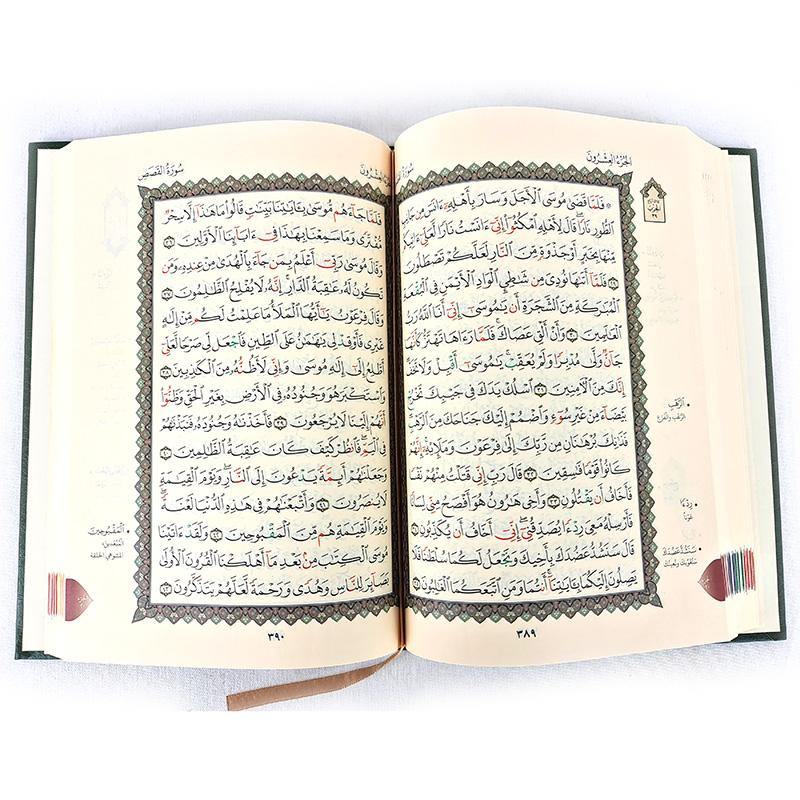 الجُزْءُ العِشْرُونَ
الحِزْب
٣٩
۞ فَلَمَّا قَضَىٰ مُوسَى ٱلْأَجَلَ وَسَارَ بِأَهْلِهِۦٓ ءَانَسَ مِن جَانِبِ
ٱلطُّورِ نَارًا قَالَ لِأَهْلِهِ ٱمْكُثُوٓا۟ إِنِّىٓ ءَانَسْتُ نَارًا لَّعَلِّىٓ ءَاتِيكُم
مِّنْهَا بِخَبَرٍ أَوْ جَذْوَةٍ مِّنَ ٱلنَّارِ لَعَلَّكُمْ تَصْطَلُونَ ٢٩
فَلَمَّآ أَتَىٰهَا نُودِىَ مِن شَٰطِئِ ٱلْوَادِ ٱلْأَيْمَنِ فِى ٱلْبُقْعَةِ
ٱلْمُبَٰرَكَةِ مِنَ ٱلشَّجَرَةِ أَن يَٰمُوسَىٰٓ إِنِّىٓ أَنَا ٱللَّهُ رَبُّ
ٱلْعَٰلَمِينَ ٣٠ وَأَنْ أَلْقِ عَصَاكَ فَلَمَّا رَءَاهَا تَهْتَزُّ كَأَنَّهَا
جَآنٌّ وَلَّىٰ مُدْبِرًا وَلَمْ يُعَقِّبْ يَٰمُوسَىٰٓ أَقْبِلْ وَلَا تَخَفْ
إِنَّكَ مِنَ ٱلْءَامِنِينَ ٣١ ٱسْلُكْ يَدَكَ فِى جَيْبِكَ تَخْرُجْ
بَيْضَآءَ مِنْ غَيْرِ سُوٓءٍ وَٱضْمُمْ إِلَيْكَ جَنَاحَكَ مِنَ ٱلرَّهْبِ
فَذَٰنِكَ بُرْهَٰنَانِ مِن رَّبِّكَ إِلَىٰ فِرْعَوْنَ وَمَلَإِي۟هِۦٓ إِنَّهُمْ
كَانُوا۟ قَوْمًا فَٰسِقِينَ ٣٢ قَالَ رَبِّ إِنِّى قَتَلْتُ مِنْهُمْ نَفْسًا
فَأَخَافُ أَن يَقْتُلُونِ ٣٣ وَأَخِى هَٰرُونُ هُوَ أَفْصَحُ مِنِّى لِسَانًا
فَأَرْسِلْهُ مَعِىَ رِدْءًا يُصَدِّقُنِىٓ إِنِّىٓ أَخَافُ أَن يُكَذِّبُونِ ٣٤
قَالَ سَنَشُدُّ عَضُدَكَ بِأَخِيكَ وَنَجْعَلُ لَكُمَا سُلْطَٰنًا فَلَا
يَصِلُونَ إِلَيْكُمَا بِـَٔايَٰتِنَآ أَنتُمَا وَمَنِ ٱتَّبَعَكُمَا ٱلْغَٰلِبُونَ ٣٥
• الرَّهْبِ
الرُّعْبِ والفَزَع
• رِدْءًا
عَوْنًا
• سَنَشُدُّ عَضُدَكَ
سَنُقَوِّيكَ ونُعِينُكَ
٣٨٩
سُورَةُ القَصَصِ
فَلَمَّا جَآءَهُم مُّوسَىٰ بِـَٔايَٰتِنَا بَيِّنَٰتٍ قَالُوا۟ مَا هَٰذَآ إِلَّا سِحْرٌ
مُّفْتَرًى وَمَا سَمِعْنَا بِهَٰذَا فِىٓ ءَابَآئِنَا ٱلْأَوَّلِينَ ٣٦
وَقَالَ مُوسَىٰ رَبِّىٓ أَعْلَمُ بِمَن جَآءَ بِٱلْهُدَىٰ مِنْ عِندِهِۦ وَمَن
تَكُونُ لَهُۥ عَٰقِبَةُ ٱلدَّارِ إِنَّهُۥ لَا يُفْلِحُ ٱلظَّٰلِمُونَ ٣٧
وَقَالَ فِرْعَوْنُ يَٰٓأَيُّهَا ٱلْمَلَأُ مَا عَلِمْتُ لَكُم مِّنْ إِلَٰهٍ
غَيْرِى فَأَوْقِدْ لِى يَٰهَٰمَٰنُ عَلَى ٱلطِّينِ فَٱجْعَل لِّى صَرْحًا لَّعَلِّىٓ
أَطَّلِعُ إِلَىٰٓ إِلَٰهِ مُوسَىٰ وَإِنِّى لَأَظُنُّهُۥ مِنَ ٱلْكَٰذِبِينَ ٣٨
وَٱسْتَكْبَرَ هُوَ وَجُنُودُهُۥ فِى ٱلْأَرْضِ بِغَيْرِ ٱلْحَقِّ وَظَنُّوٓا۟
أَنَّهُمْ إِلَيْنَا لَا يُرْجَعُونَ ٣٩ فَأَخَذْنَٰهُ وَجُنُودَهُۥ فَنَبَذْنَٰهُمْ
فِى ٱلْيَمِّ فَٱنظُرْ كَيْفَ كَانَ عَٰقِبَةُ ٱلظَّٰلِمِينَ ٤٠
وَجَعَلْنَٰهُمْ أَئِمَّةً يَدْعُونَ إِلَى ٱلنَّارِ وَيَوْمَ ٱلْقِيَٰمَةِ
لَا يُنصَرُونَ ٤١ وَأَتْبَعْنَٰهُمْ فِى هَٰذِهِ ٱلدُّنْيَا لَعْنَةً
وَيَوْمَ ٱلْقِيَٰمَةِ هُم مِّنَ ٱلْمَقْبُوحِينَ ٤٢ وَلَقَدْ ءَاتَيْنَا
مُوسَى ٱلْكِتَٰبَ مِنۢ بَعْدِ مَآ أَهْلَكْنَا ٱلْقُرُونَ ٱلْأُولَىٰ
بَصَآئِرَ لِلنَّاسِ وَهُدًى وَرَحْمَةً لَّعَلَّهُمْ يَتَذَكَّرُونَ ٤٣
• المَقْبُوحِينَ
المُبْعَدِينَ،
المُشَوَّهِي الخِلْقَة
٣٩٠